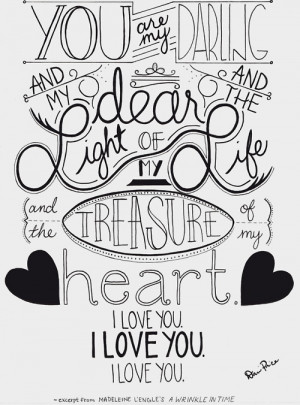 YOU are my DARLING
AND MY dear AND THE
Light OF MY Life
(and the TREASURE of my)
heart.
I LOVE YOU.
I LOVE YOU.
I LOVE YOU.
Dan Rice
~excerpt from MADELEINE L'ENGLE'S A WRINKLE IN TIME